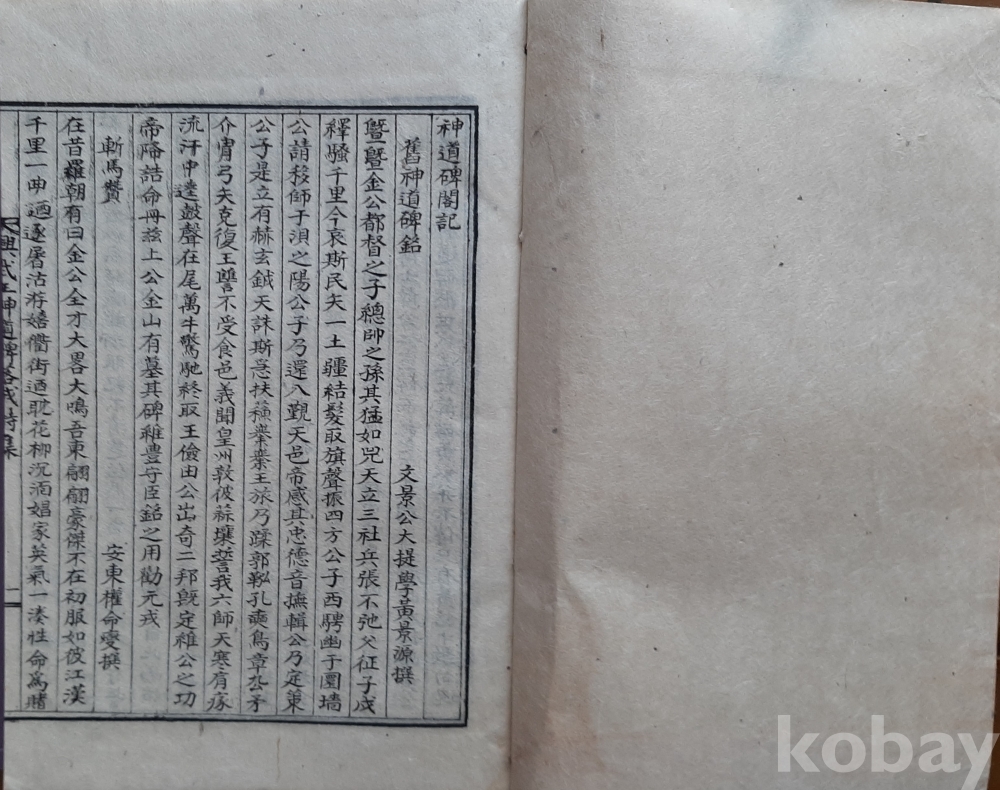 神道碑閣記
舊神道碑銘 文景公大提學黃景源撰
曁曁金公都督之子總帥之孫其猛如兕天立三社兵張不弛父征子成
釋騷千里今哀斯民矢一土疆結髮取旗聲振四方公子西騁幽于圜墻
公請移師于浿之陽公子乃還入覲天邑帝感其忠德音撫輯公乃定策
公子是立有赫玄鉞天誅斯急扶蘓擧義王旅乃蹂郭鞃孔奭鳥章厹矛
介冑弓矢克復王讐不受食邑義聞皇州敦彼蒜壤誓我六師天寒膚瘃
流汗中逵鼓聲在尾萬牛驚馳終取王儉由公出奇二邦旣定維公之功
帝降誥命冊玆上公金山有墓其碑維豊守臣銘之用勸元戎
斬馬贊 安東權命燮撰
在昔羅朝有曰金公全才大畧大鳴吾東翩翩豪傑不在初服如彼江漢
千里一曲迺逐屠沽游嬉衢街迺耽花柳沉湎娼家英氣一湊性命爲賭
興武王神道碑落成詩集
一
kobay